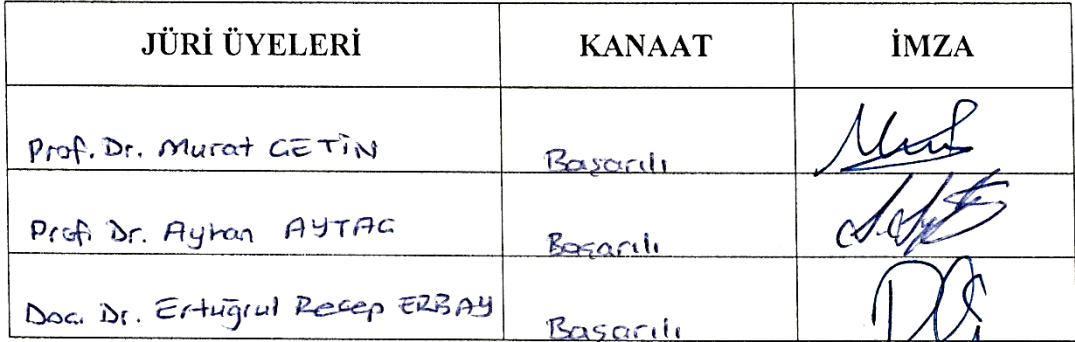 JÜRİ ÜYELERİ KANAAT İMZA
Prof. Dr. Murat ÇETİN Başarılı
Prof. Dr. Ayhan AYTAÇ Başarılı
Doç. Dr. Ertuğrul Recep ERBAY Başarılı